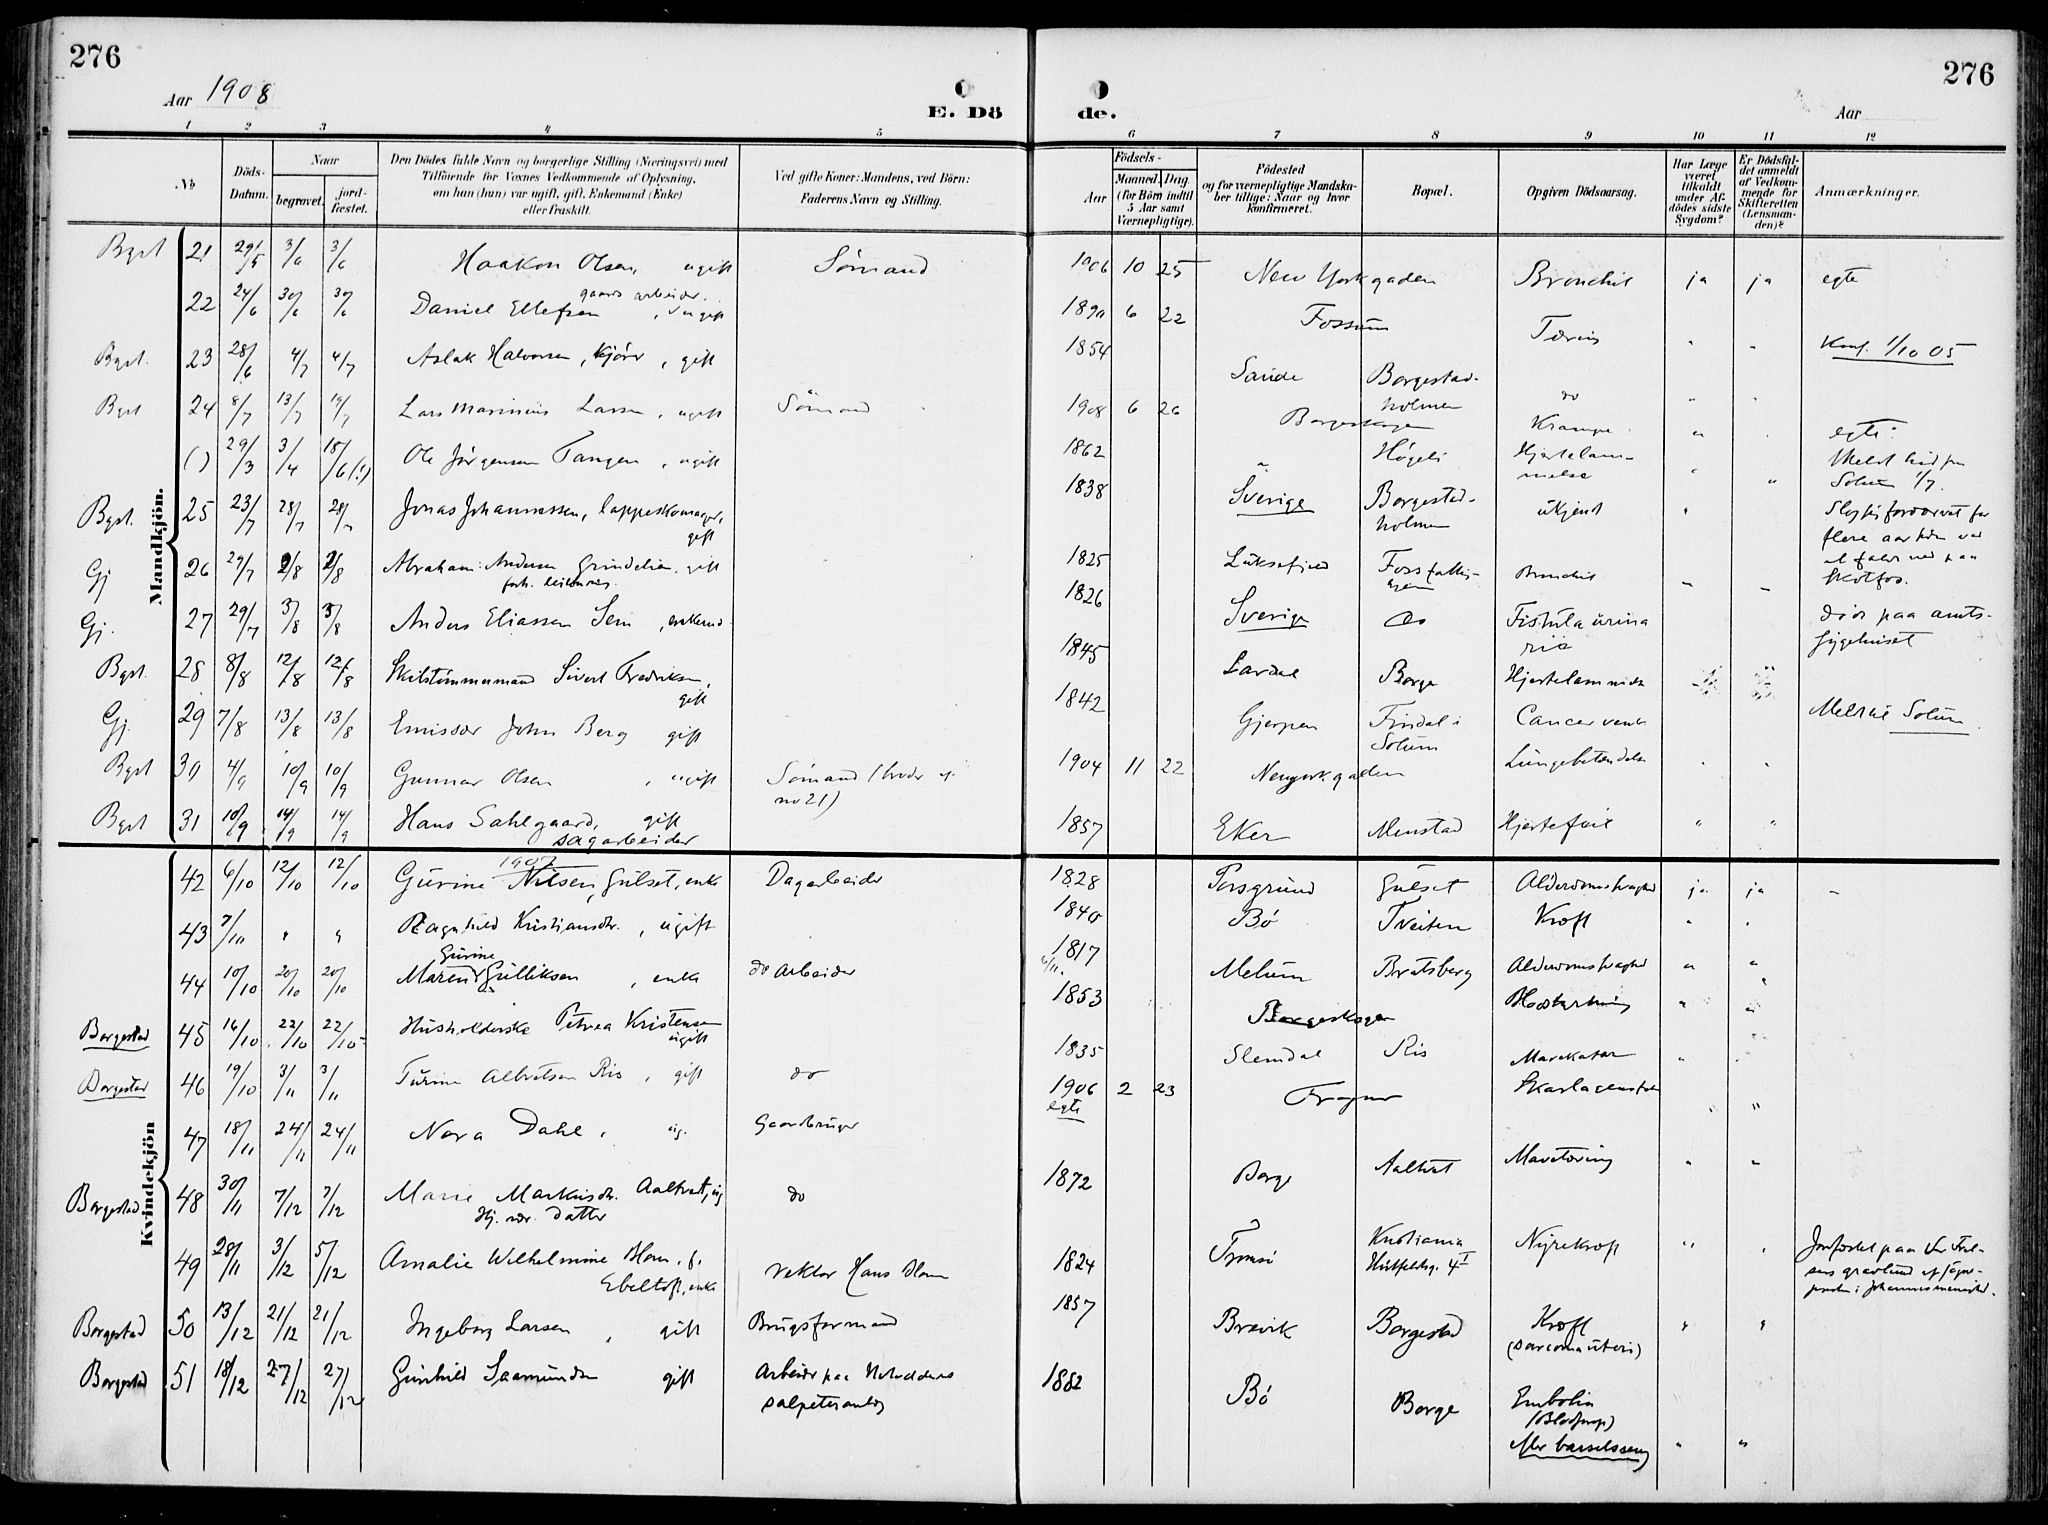 276
276
Aar 1908
E. Döde.
Aar
1 2 3 4 5 6 7 8 9 10 11 12
№
Döds-Datum.
Naar
begravet.
jordfæstet.
Den Dödes fulde Navn og borgerlige Stilling (Næringsvei) med
Tilföiende for Voxnes Vedkommende af Oplysning,
om han (hun) var ugift, gift, Enkemand (Enke)
eller fraskilt.
Ved gifte Koner: Mandens, ved Börn:
Faderens Navn og Stilling.
Födsels-
Aar
Maaned. Dag.
(for Börn indtil
5 Aar samt
Værnepligtige).
Födested
og for værnepligtige Mandskaber tillige: Naar og hvor
konfirmeret.
Bopæl.
Opgiven Dödsaarsag.
Har Læge
været
tilkaldt
under Afdödes sidste
Sygdom?
Er Dödsfaldet anmeldt
af Vedkommende for
Skifteretten
(Lensmanden)?
Anmærkninger.
Mandkjön.
Bgst 21 29/5 3/6 3/6 Haakon Olsen, ugift Sömand 1906 10 25 New Yorkgaden Bronchit ja ja egte
22 24/6 30/6 30/6 Daniel Ellefsen gaardsarbeider, ugift 1890 6 22 Fossum Tæring " " Konf. 1/10 05
Bgst. 23 28/6 4/7 4/7 Aslak Halvorsen, kjörer, gift 1854 Saude Borgestadholmen do " "
Bgst 24 8/7 13/7 19/7 Lars Marinius Larsen, ugift Sömand 1908 6 26 Borgeskogen Krampe " " egte
( ) 29/3 3/4 18/6 (!) Ole Jörgensen Tangen, ugift 1862 Högeli Hjertelammelse " Meldt hid fra Solum 1/7.
Bgst. 25 23/7 28/7 28/7 Jonas Johannessen, lappeskomager, gift 1838 Sverige Borgestadholmen ukjendt " "
flere aar siden ved
at falde ned paa
Skotfos.
Gj 26 29/7 2/8 2/8 Abraham Andersen Grindelien, gift 1825 Luksefjeld Bronchit " "
Gj. 27 29/7 3/8 3/8 Anders Eliassen Sem, enkemd. 1826 Sverige do Fistula urinaria
död paa amtssygehuset
Bgst. 28 8/8 12/8 12/8 Skibstömmermand Sivert Fredriksen, gift 1845 Lardal Borge Hjertelammelse
Gj. 29 7/8 13/8 13/8 Emissær John Berg gift 1842 Gjerpen Findal i Solum Cancer ventr. Meldt til Solum
Bgst 30 4/9 10/9 10/9 Gunnar Olsen, ugift Sömand (broder af no 21) 1904 11 22 Newyorkgaden Lungebetændelse " "
Bgst 31 10/9 14/9 14/9 Hans Sahlgaard, gift sagarbeider 1857 Eker Menstad Hjertefeil " "
Kvindekjön
42 6/10 12/10 12/10 Gurine Nilsen, Gulset, enke Dagarbeider 1828 Porsgrund Gulset Alderdomssvaghed ja ja
43 7/11 " " Ragnhild Kristiansdtr., ugift 1840 Bö Tveiten Kræft " "
44 10/10 20/10 20/10 Maren Gurine Gulliksen, enke do Arbeider 1817 6/11. Melum Bratsberg Alderdomssvaghed " "
Borgestad 45 16/10 22/10 22/10 Husholderske Petrea Kristensen ugift 1853 Borgeskogen " "
Borgestad 46 19/10 3/11 3/11 Turine Albretsen Ris, gift do 1835 Slemdal Ris Mavekatar " "
47 18/11 24/11 24/11 Nora Dahl, ug. Gaardbruger 1906 egte 2 23 Frogner Skarlagensfeber " "
Borgestad 48 30/11 7/12 7/12 Marie Markusdtr. Aaltvedt, ug Hj. vær. datter do 1872 Borge Aaltvet Mavetæring " "
49 28/11 3/12 5/12 Amalie Wilhelmine Blom, f. Ebeltoft, enke rektor Hans Blom 1824 Tromsö Kristiania Huitfeldtsg. 4 I Nyrekræft " "
Jordfæstet paa Vor Frelsers gravlund af sognepresten i Johannesmenighed.
Borgestad 50 13/12 21/12 21/12 Ingeborg Larsen, gift Brugsformand 1857 Brevik Borgestad Kræft (sarcoma uteri) " "
Borgestad 51 18/12 27/12 27/12 Gunhild Saamundsen gift Arbeider paa Notoddens salpeteranlæg 1882 Bö Borge Emboli (Blodprop) efter barselsseng " "